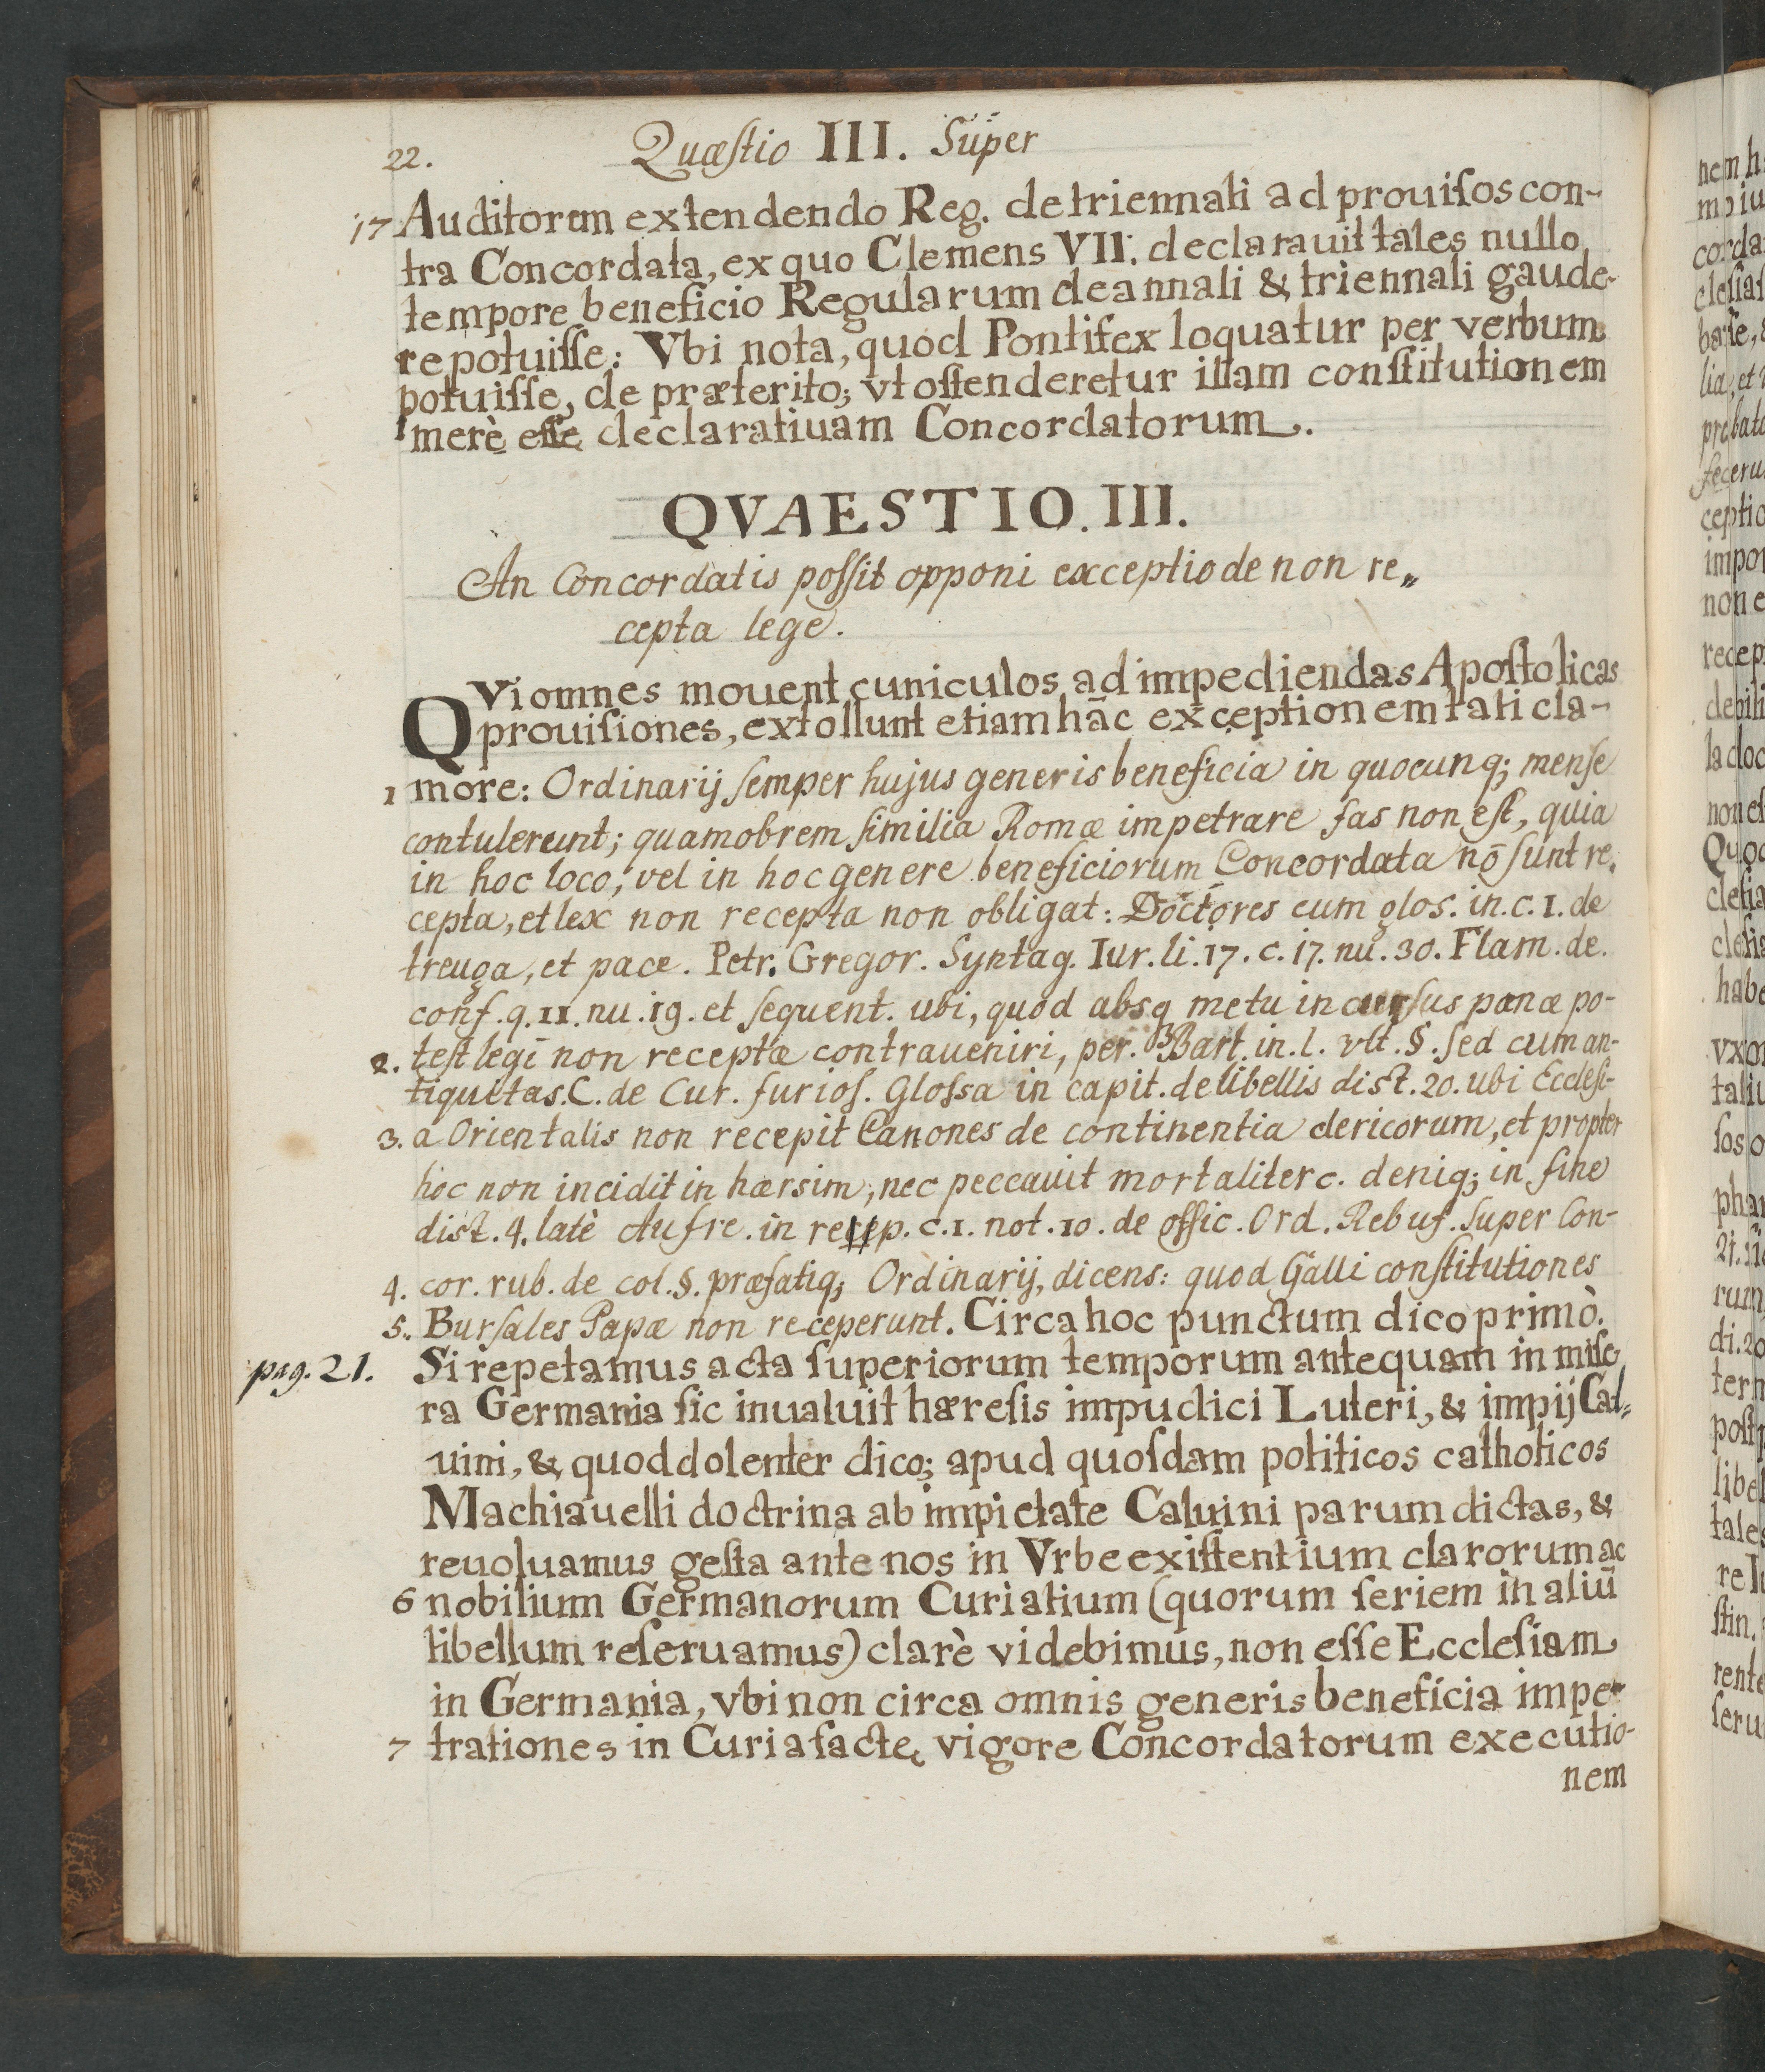 22. Quæſtio III. Super
17 Auditorum extendendo Reg. de triennali ad prouiſos con-
tra Concordata, ex quo Clemens VII. declarauit tales nullo
tempore beneficio Regularum de annali & triennali gaude-
re potuiſſe: Vbi nota, quod Pontifex loquatur per verbum
potuiſſe, de præterito; vt oſtenderetur illam conſtitutionem
merè eſſe declaratiuam Concordatorum.
QVAESTIO. III.
An Concordatis poſſit opponi exceptio de non re„
cepta lege.
QVi omnes mouent cuniculos ad impediendas Apoſtolicas
prouiſiones, extollunt etiam hāc exceptionem tali cla-
1 more: Ordinarij ſemper hujus generis beneficia in quocunq; menſe
contulerunt; quamobrem ſimilia Romæ impetrare fas non eſt, quia
in hoc loco, vel in hoc genere beneficiorum Concordata nō ſunt re.
cepta, et lex non recepta non obligat: Doctores cum glos. in. c. 1. de
treuga, et pace. Petr. Gregor. Syntag. Iur. li. 17. c. 17. nu. 30. Flam. de.
conf. q. 11. nu. 19. et ſequent. ubi, quod absq metu incurſus pœnæ po-
2. teſt legi non receptæ contraueniri, per. Bart. in. l. vlt. §. ſed cum an-
tiquitas. C. de Cur. furioſ. Gloſsa in capit. de libellis dist. 20. ubi Eccleſi-
3. a Orientalis non recepit Canones de continentia clericorum, et propter
hoc non incidit in hærsim, nec peccauit mortaliter c. deniq; in fine
dist. 4. latè Aufre. in rep. c. 1. not. 10. de offic. Ord. Rebuf. Super Con-
4. cor. rub. de col. §. præfatiq; Ordinarij, dicens: quod Galli conſtitutiones
5. Burſales Papæ non receperunt. Circa hoc punctum dico primò.
pag. 21. Si repetamus acta ſuperiorum temporum antequam in miſe,
ra Germania ſic inualuit hæreſis impudici Luteri, & impij Cal=
uini, & quod dolenter dico; apud quoſdam politicos catholicos
Machiauelli doctrina ab impietate Caluini parum dictas, &
reuoluamus geſta ante nos in Vrbe exiſtentium clarorum ac
6 nobilium Germanorum Curialium (quorum ſeriem in aliū
libellum reſeruamus) clarè videbimus, non eſſe Eccleſiam
in Germania, vbi non circa omnis generis beneficia impe-
7 trationes in Curia factę vigore Concordatorum executio-
nem